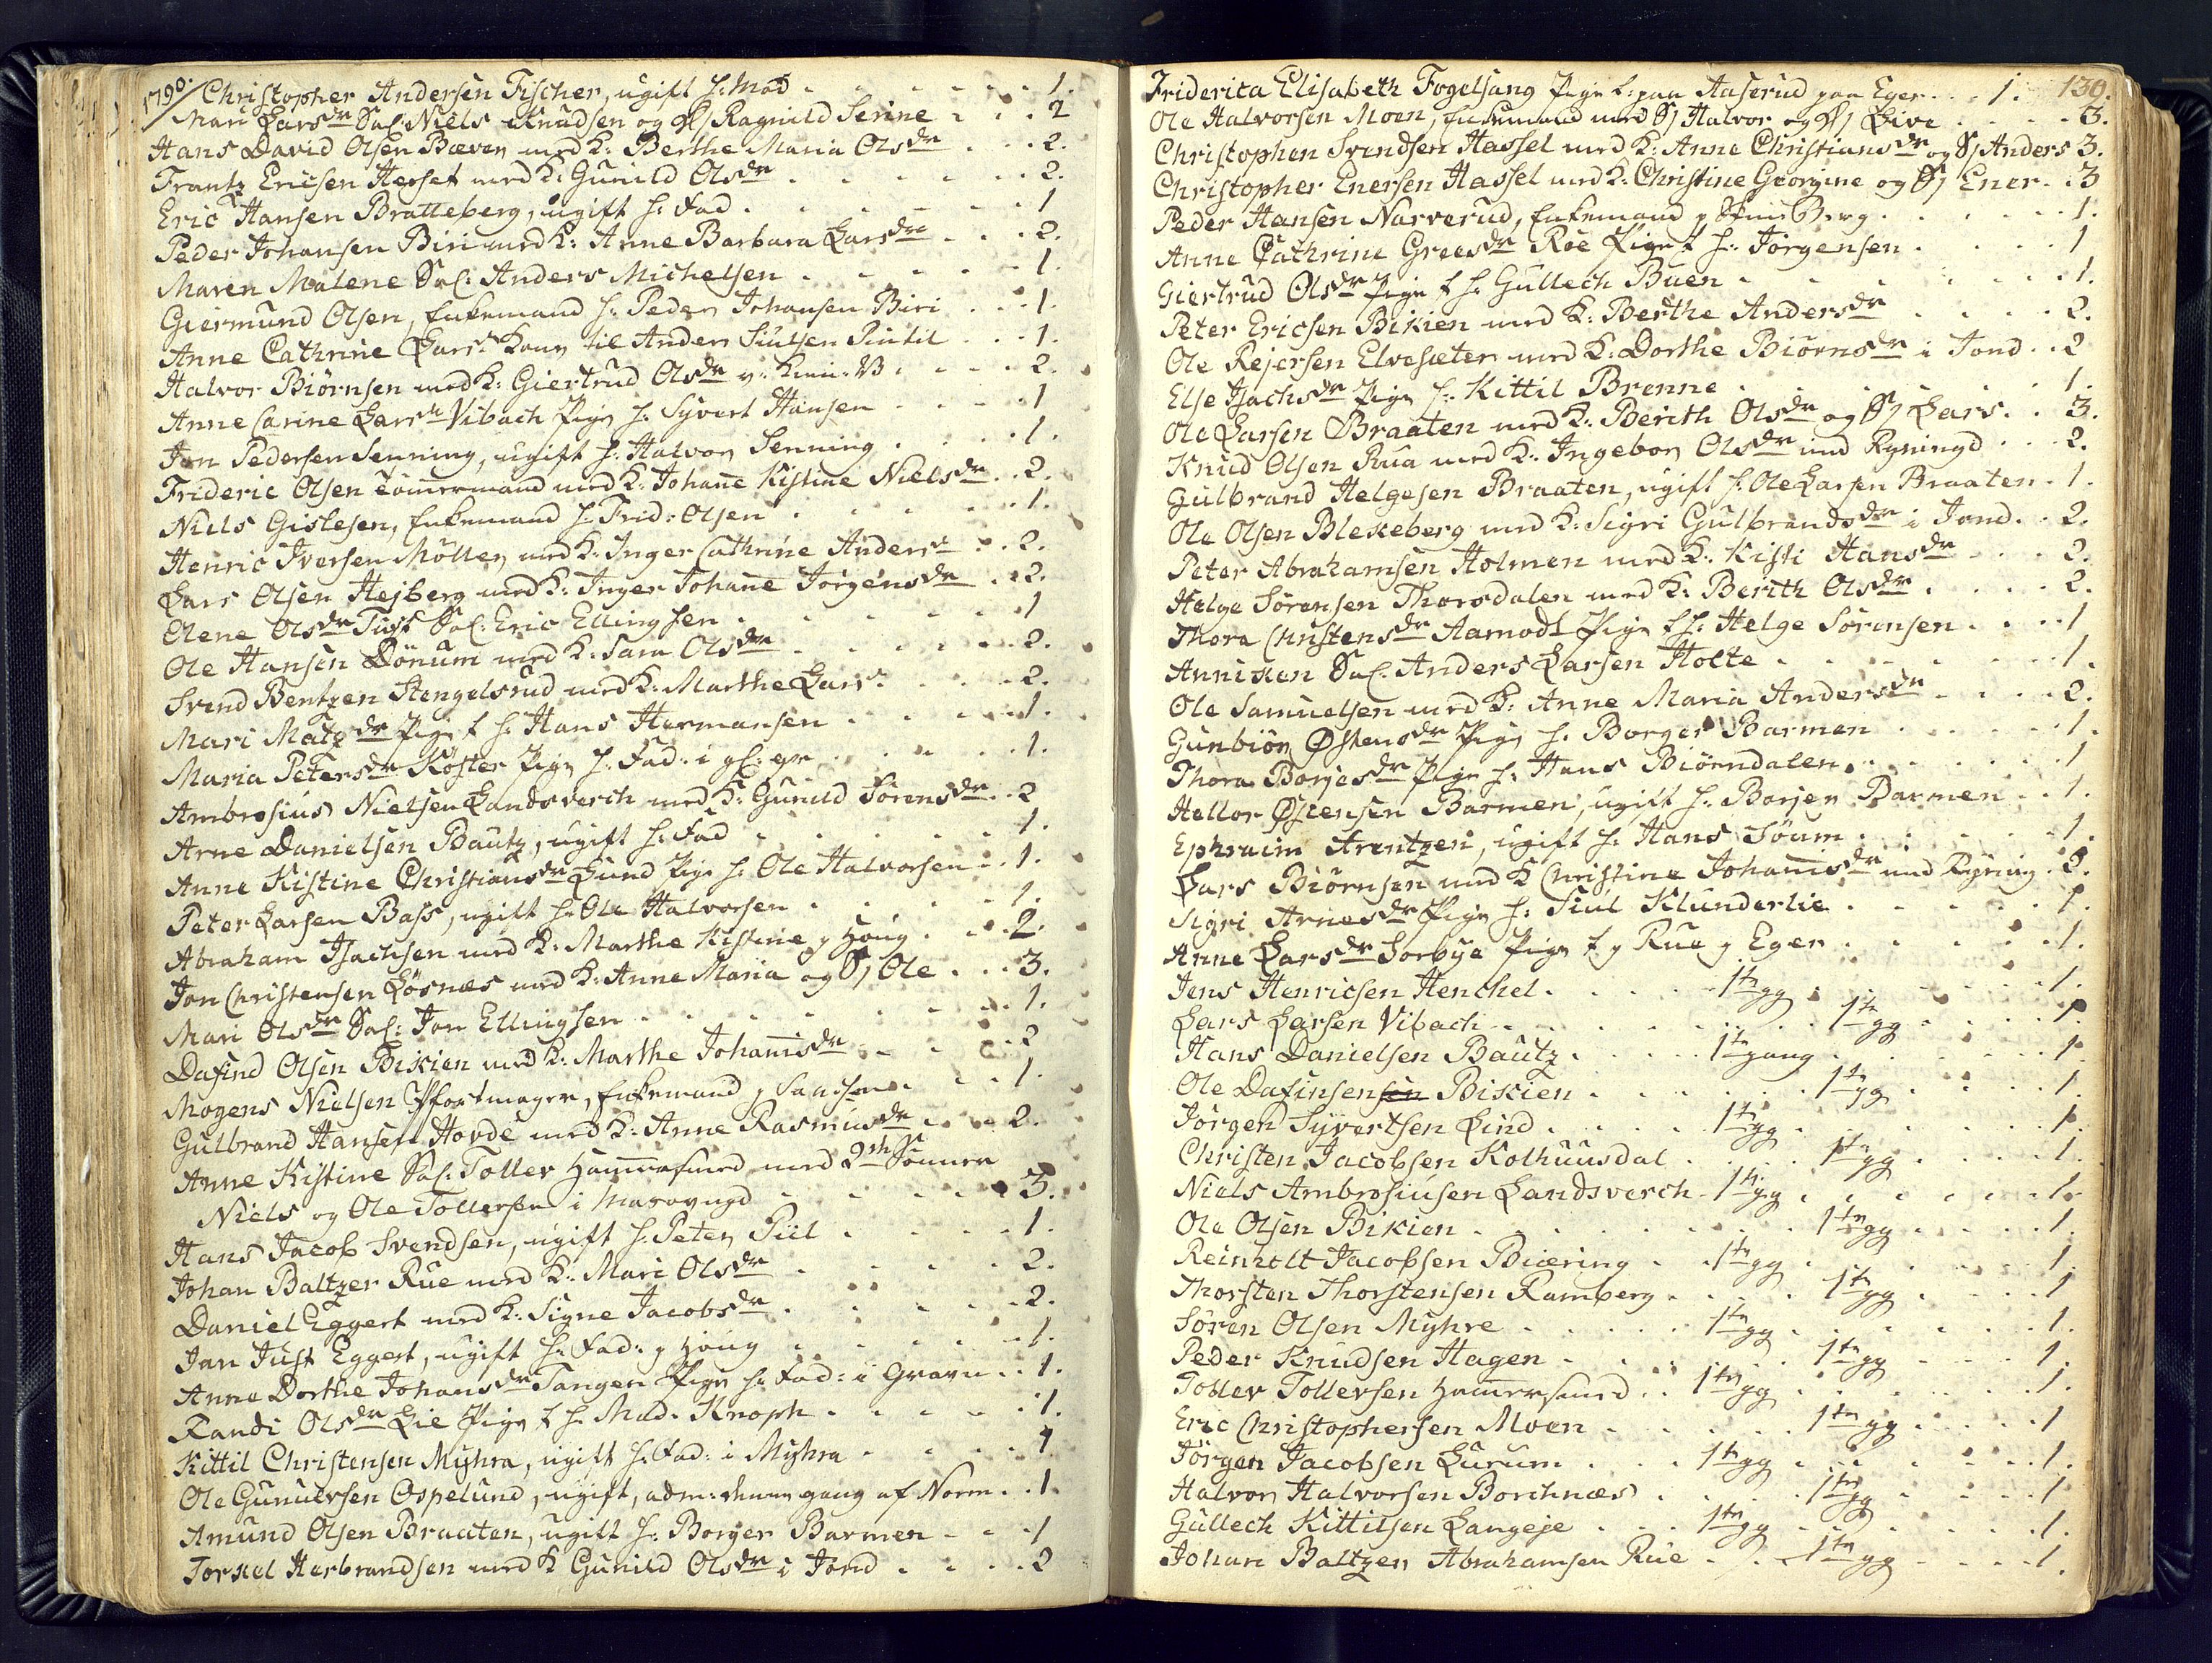 1790.
Christopher Andersen Fischer, ugift h: Mad . . . 1.
Mari Larsdr Sal: Niels Knudsen og D/ Ragnild Serine . . . 2
Hans David Olsen Bæver med K: Berthe Maria Olsdr . . . 2.
Frantz Ericsen Herset med K: Gunild Olsdr . . . 2.
Eric Hansen Bratteberg, ugift h: Fad . . . 1
Peder Johansen Biri med K: Anne Barbara Larsdr . . . 2.
Maren Malene Sal: Anders Michelsen . . . 1.
Giermund Olsen, Enkemand h: Peder Johansen Biri . . . 1.
Anne Cathrine Larsdr Kone til Anders Siulsen . . . 1.
Halvor Biörnsen med K: Giertrud Olsdr . . . 2.
Anne Carine Larsdr Vibach Pige h: Syvert Hansen . . . 1
Jon Pedersen Senning, ugift h: Halvor Senning . . . 1.
Frideric Olsen Tömermand med K: Johañe Kistine Nielsdr . . 2.
Niels Gislesen, Enkemand h: Frid: Olsen . . . 1.
Henric Iversen Möller med K: Inger Cathrine Andersdr . . 2.
Lars Olsen Hejberg med K: Inger Johañe Jörgensdr . . 2.
Olene Olsdr Tufs Sal: Eric Ellingsen . . . 1
Ole Hansen Dönum med K: Sara Olsdr . . . 2.
Svend Bentzen Stengelsrud med K: Marthe Larsdr . . . 2.
Mari Matzdr Pige f h: Hans Hermansen . . . 1.
Maria Petersdr Köster Pige h: Fad: i gl: gr . . . 1.
Ambrosius Nielsen Landsverch med K: Gunild Sörensdr . . 2
Arne Danielsen Bautz, ugift h: Fad . . . 1.
Anne Kistine Christiansdr Lund Pige h: Ole Halvorsen . . 1.
Peter Larsen Bass, ugift h: Ole Halvorsen . . . 1.
Abraham Isachsen med K: Marthe Kistine p Houg . . . 2.
Jon Christensen Lösnæs med K: Anne Maria og S/ Ole . . . 3.
Mari Olsdr Sal: Jon Ellingsen . . . 1.
Dafind Olsen Bikien med K: Marthe Johañisdr . . . 2
Mogens Nielsen Pfortmager, Enkemand p . . . 1.
Gulbrand Hansen Hovde med K: Anne Rasmusdr . . . 2.
Anne Kistine Sal: Toller Hamersmed med 2de Sönner
Niels og Ole Tollersen i . . . 3.
Hans Jacob Svendsen, ugift h: Peter Piil . . . 1.
Johan Baltzer Rue med K: Mari Olsdr . . . 2.
Daniel Eggert med K: Signe Jacobsdr . . . 2.
Jan Just Eggert, ugift h: Fad: p Houg . . . 1.
Anne Dorthe Johansdr Tangen Pige h: Fad: i Graven . . 1.
Randi Olsdr Lie Pige f h: Mad. Knoph . . . 1.
Kittil Christensen Myhra, ugift h: Fad: i Myhra . . . 1
Ole Gunulvsen Ospelund, ugift, adm: denne gang af Norm . . 1.
Amund Olsen Braaten, ugift h: Borger Barmen . . . 1
Torkel Herbrandsen med K Gunild Olsdr i Jond . . . 2
130.
Friderica Elisabeth Fogelsang Pige f: paa Aaserud paa Eger . . . 1.
Ole Halvorsen Moen, Enkemand med S/ Halvor og D/ Live . . . 3.
Christophen Svendsen Hassel med K: Anne Christiansdr og S/ Anders 3.
Christopher Enersen Hassel med K: Christine Georgine og S/ Ener . . 3
Peder Hansen Narverud, Enkemand p . . . 1.
Anne Cathrine Greesdr Roe Pige f h: Jörgensen . . . 1
Giertrud Olsdr Pige f h: Gullech Buen . . . 1.
Peter Ericsen Bikien med K: Berthe Andersdr . . . 2.
Ole Rejersen Elvesæter med K: Dorthe Biörnsdr i Jond . . 2
Else Isachsdr Pige h: Kittil Brenne . . . 1.
Ole Larsen Braaten med K: Berith Olsdr og S/ Lars . . 3.
Knud Olsen Rua med K: Ingebor Olsdr ved Ryningd . . . 2.
Gulbrand Helgesen Braaten, ugift h: Ole Larsen Braaten . 1.
Ole Olsen Blekeberg med K: Sigri Gulbrandsdr i Jond . . 2.
Peter Abrahamsen Holmen med K: Kisti Hansdr . . . 2.
Helge Sörensen Thorsdalen med K: Berith Olsdr . . . 2.
Thora Christensdr Aamodt Pige f h: Helge Sörensen . . . 1
Anniken Sal: Anders Larsen Holte . . . 1.
Ole Samuelsen med K: Anne Maria Andersdr . . . 2.
Gunbiör Östensdr Pige h: Borger Barmen . . . 1.
Thora Borgesdr Pige h: Hans Biörndalen . . . 1
Hellor Östensen Barmen, ugift h: Borger Barmen . . 1.
Ephraim Arentzen, ugift h: Hans Söum . . . 1.
Lars Biörnsen med K Christine Johañisdr ved Ryning . 2.
Sigri Arnesdr Pige h: Siul Klunderlie . . . 1.
Anne Larsdr Sorbye Pige f p Rue p Eger . . . 1.
Jens Henricsen Henchel . . . 1te gg . . . 1.
Lars Larsen Vibach . . . 1te gg . . . 1
Hans Danielsen Bautz . . . 1te gang . . . 1
Ole Dafinsen Bikien . . . 1te gg . . . 1.
Jörgen Syvertsen Lind . . . 1te gg . . . 1.
Christen Jacobsen Kolhuusdal . . . 1te gg . . . 1.
Niels Ambrosiusen Landsverch . 1te gg . . . 1.
Ole Olsen Bikien . . . 1te gg . . . 1.
Reinholt Jacobsen Biæring . . 1te gg . . . 1.
Thorsten Thorstensen Ramberg . . . 1te gg . . . 1
Sören Olsen Myhre . . . 1te gg . . . 1.
Peder Knudsen Hagen . . . 1te gg . . . 1.
Toller Tollersen Hamersmed . . 1te gg . . . 1.
Eric Christophersen Moen . . . 1te gg . . . 1
Jörgen Jacobsen Lurum . . . 1te gg . . . 1.
Halvor Halvorsen Borchnæs . . . 1te gg . . . 1
Gullech Kittilsen Langeje . . . 1te gg . . . 1.
Johan Baltzer Abrahamsen Rue . . . 1te gg . . . 1.